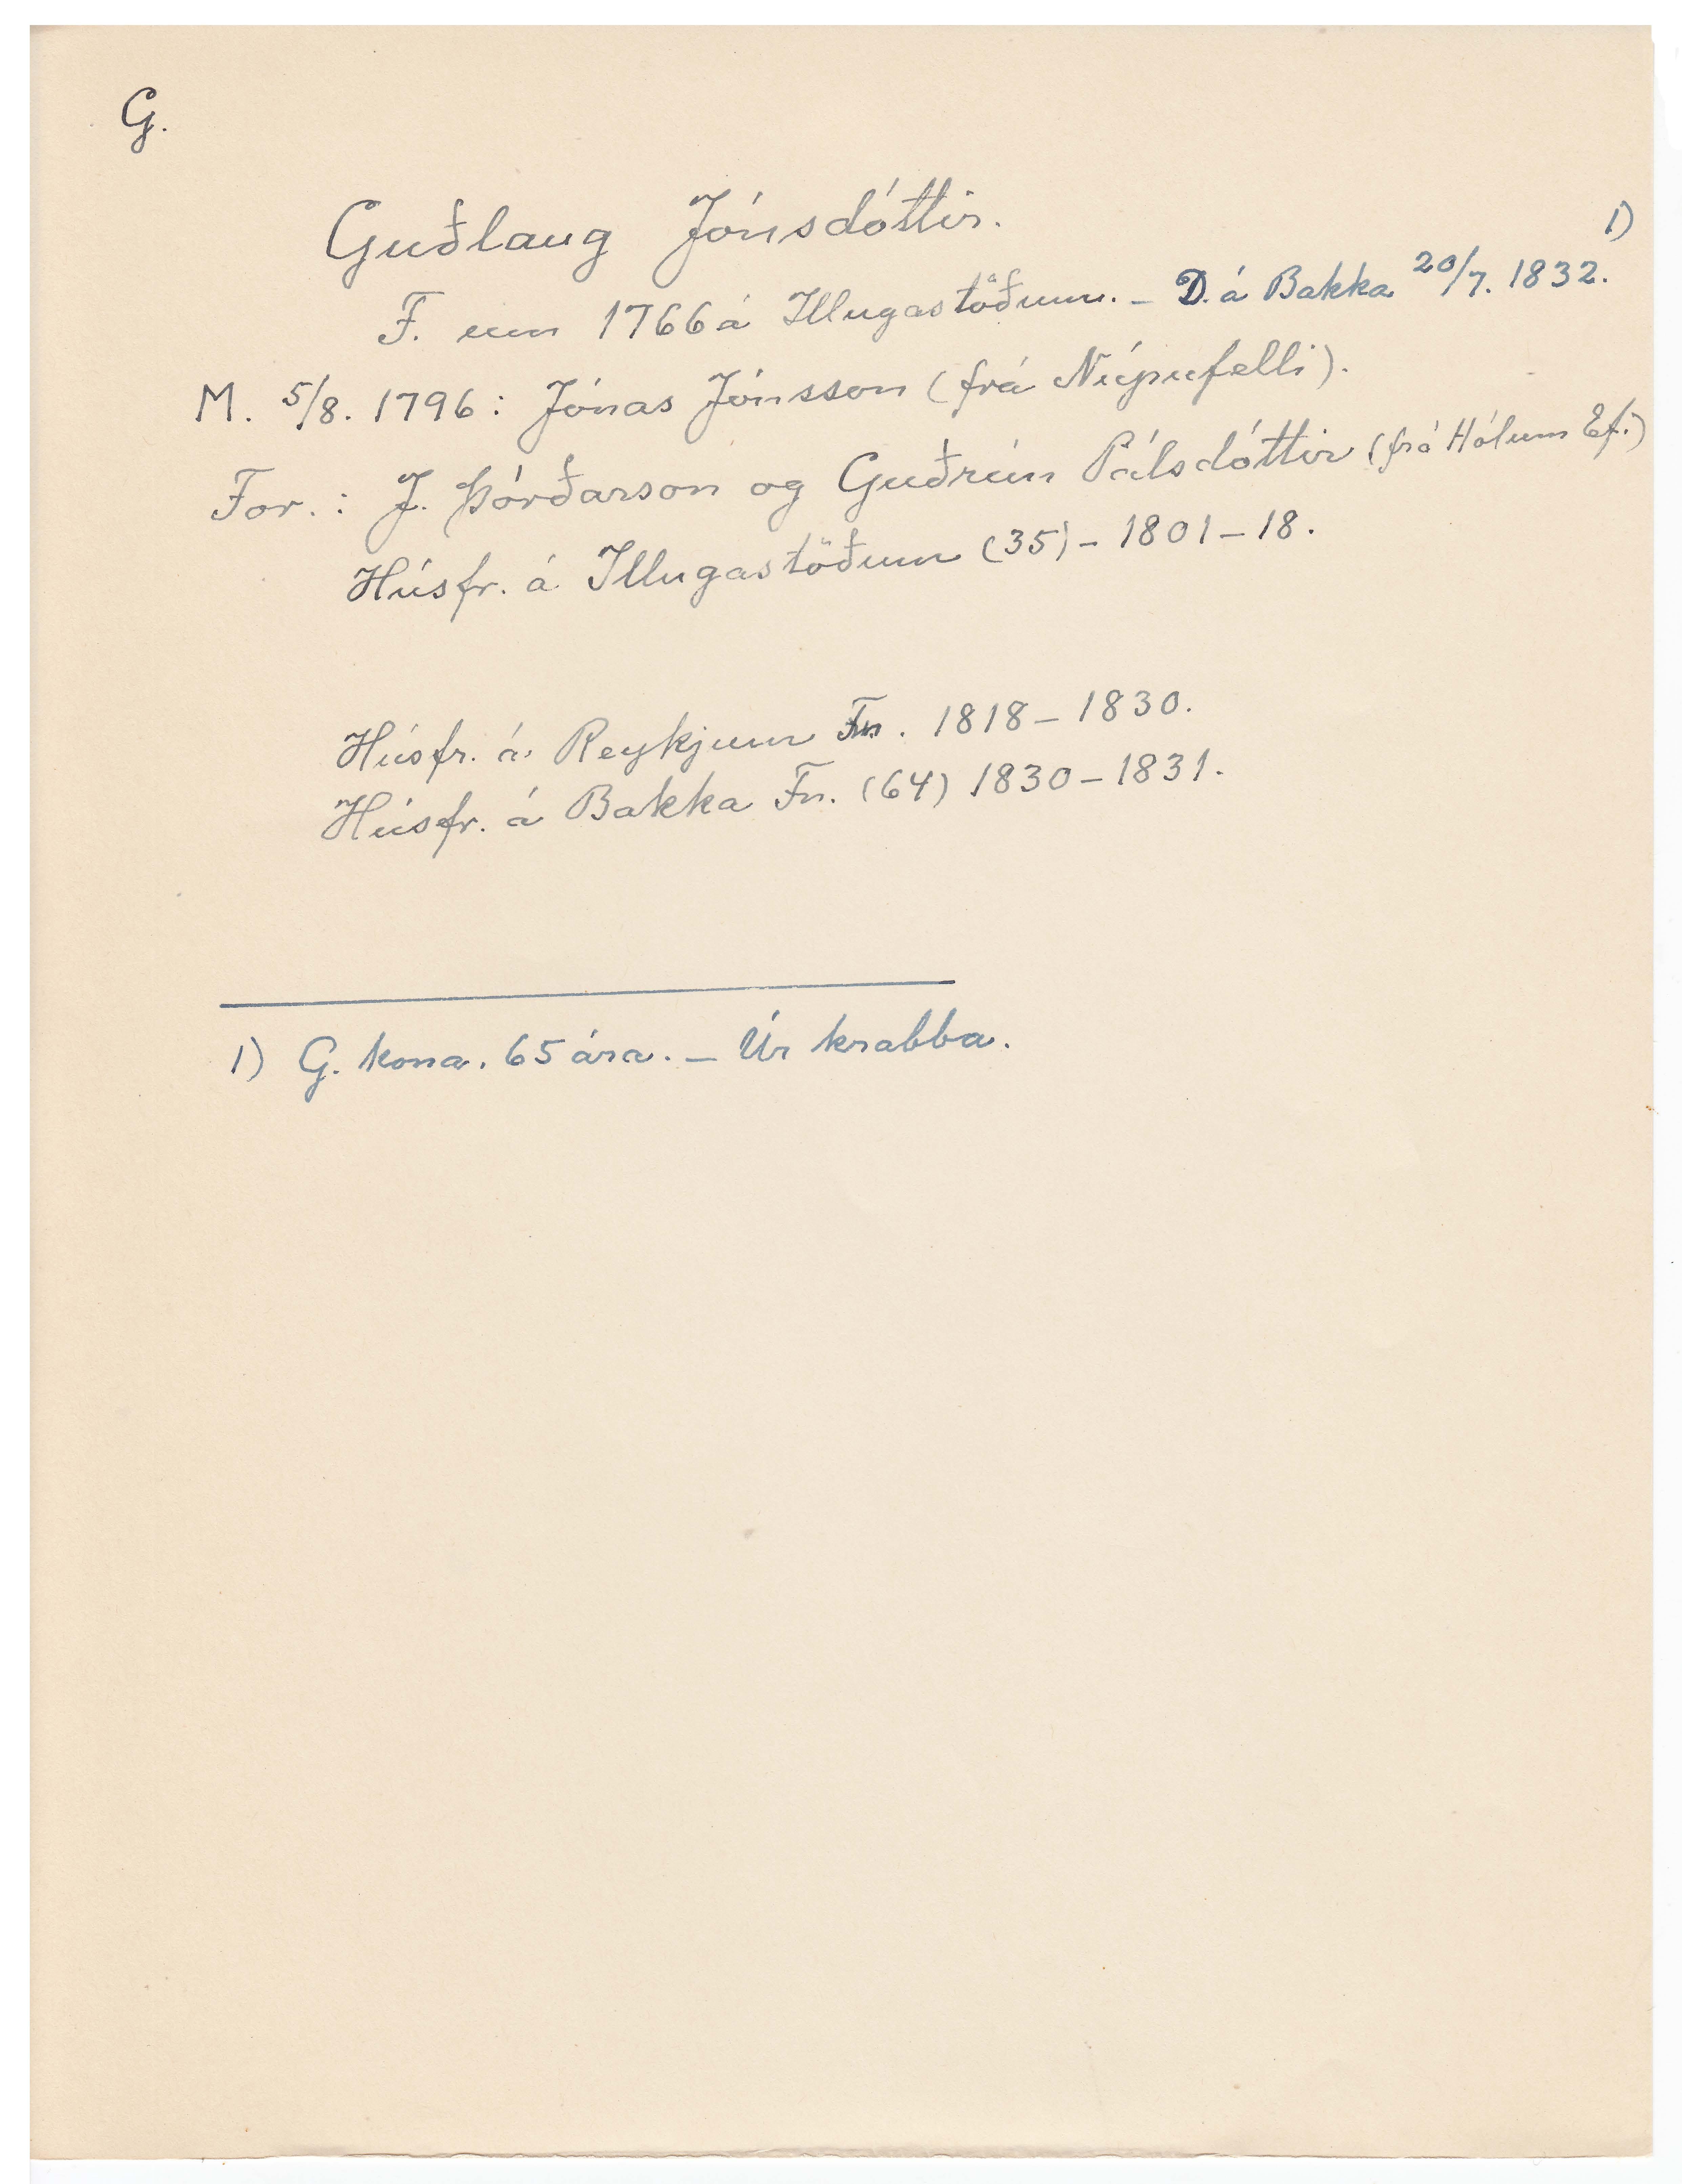 G.
Guðlaug Jónsdóttir.
F. um 1766 á Illugastöðum. – D. á Bakka 20/7. 1832. 1)
M. 5/8. 1796: Jónas Jónsson (frá Núpufelli).
For.: J. Þórðarson og Guðrún Pálsdóttir (frá Hólum Ef.)
Húsfr. á Illugastöðum (35) – 1801 – 18.
Húsfr. á Reykjum Fn. 1818 – 1830.
Húsfr. á Bakka Fn. (64) 1830 – 1831.
1) G. kona. 65 ára. – Úr krabba.